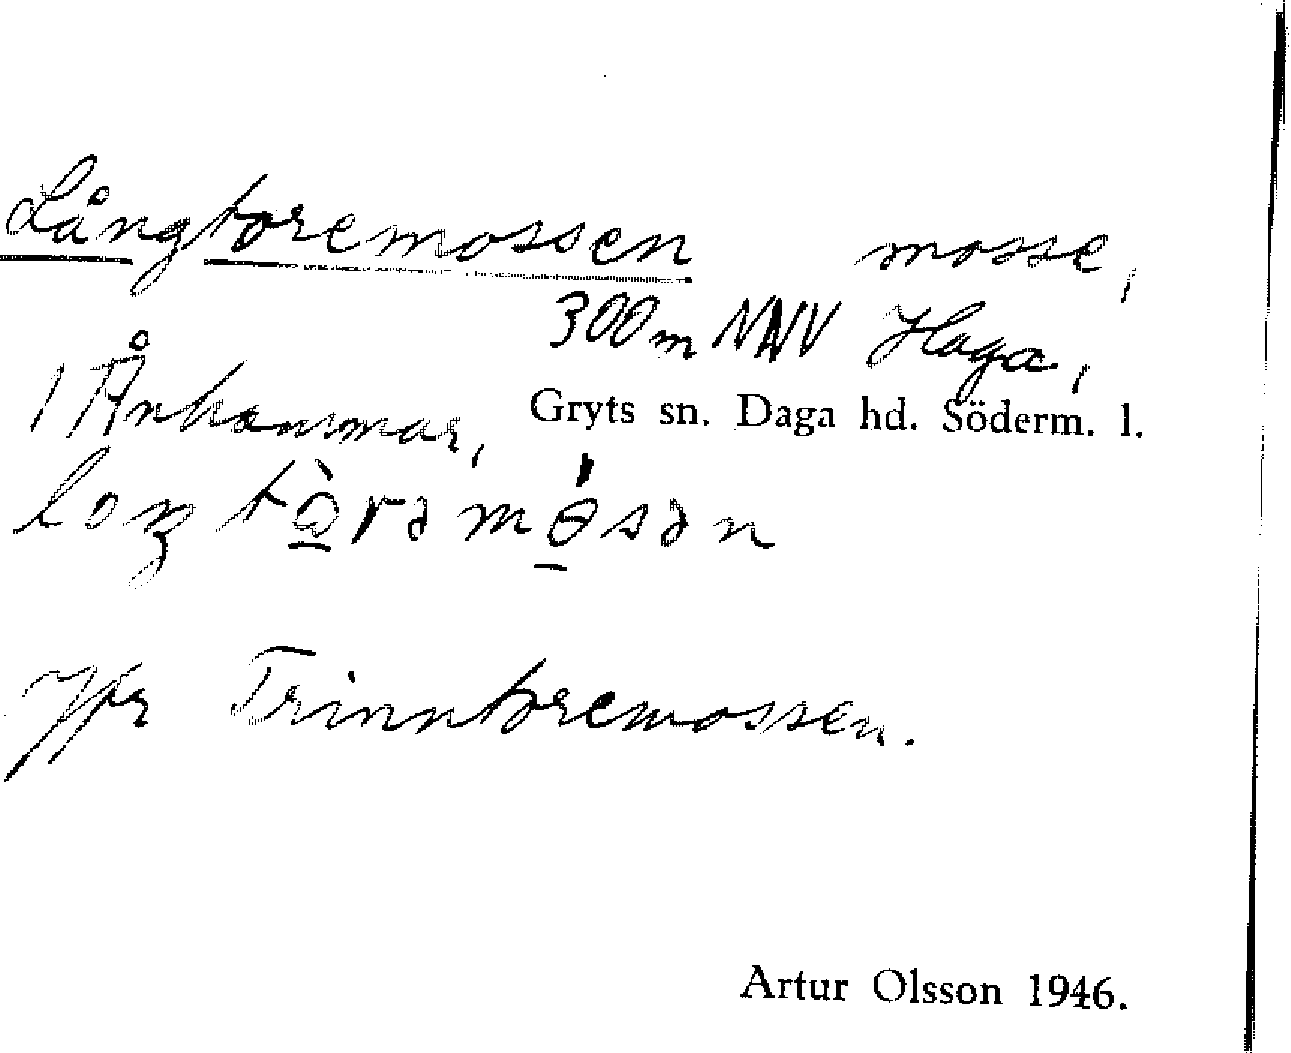 Långtoremossen mosse,
300 m NNV Haga,
1 Ånhammar, Gryts sn. Daga hd. Söderm. l.
Jfr Trinntoremossen.
Artur Olsson 1946.